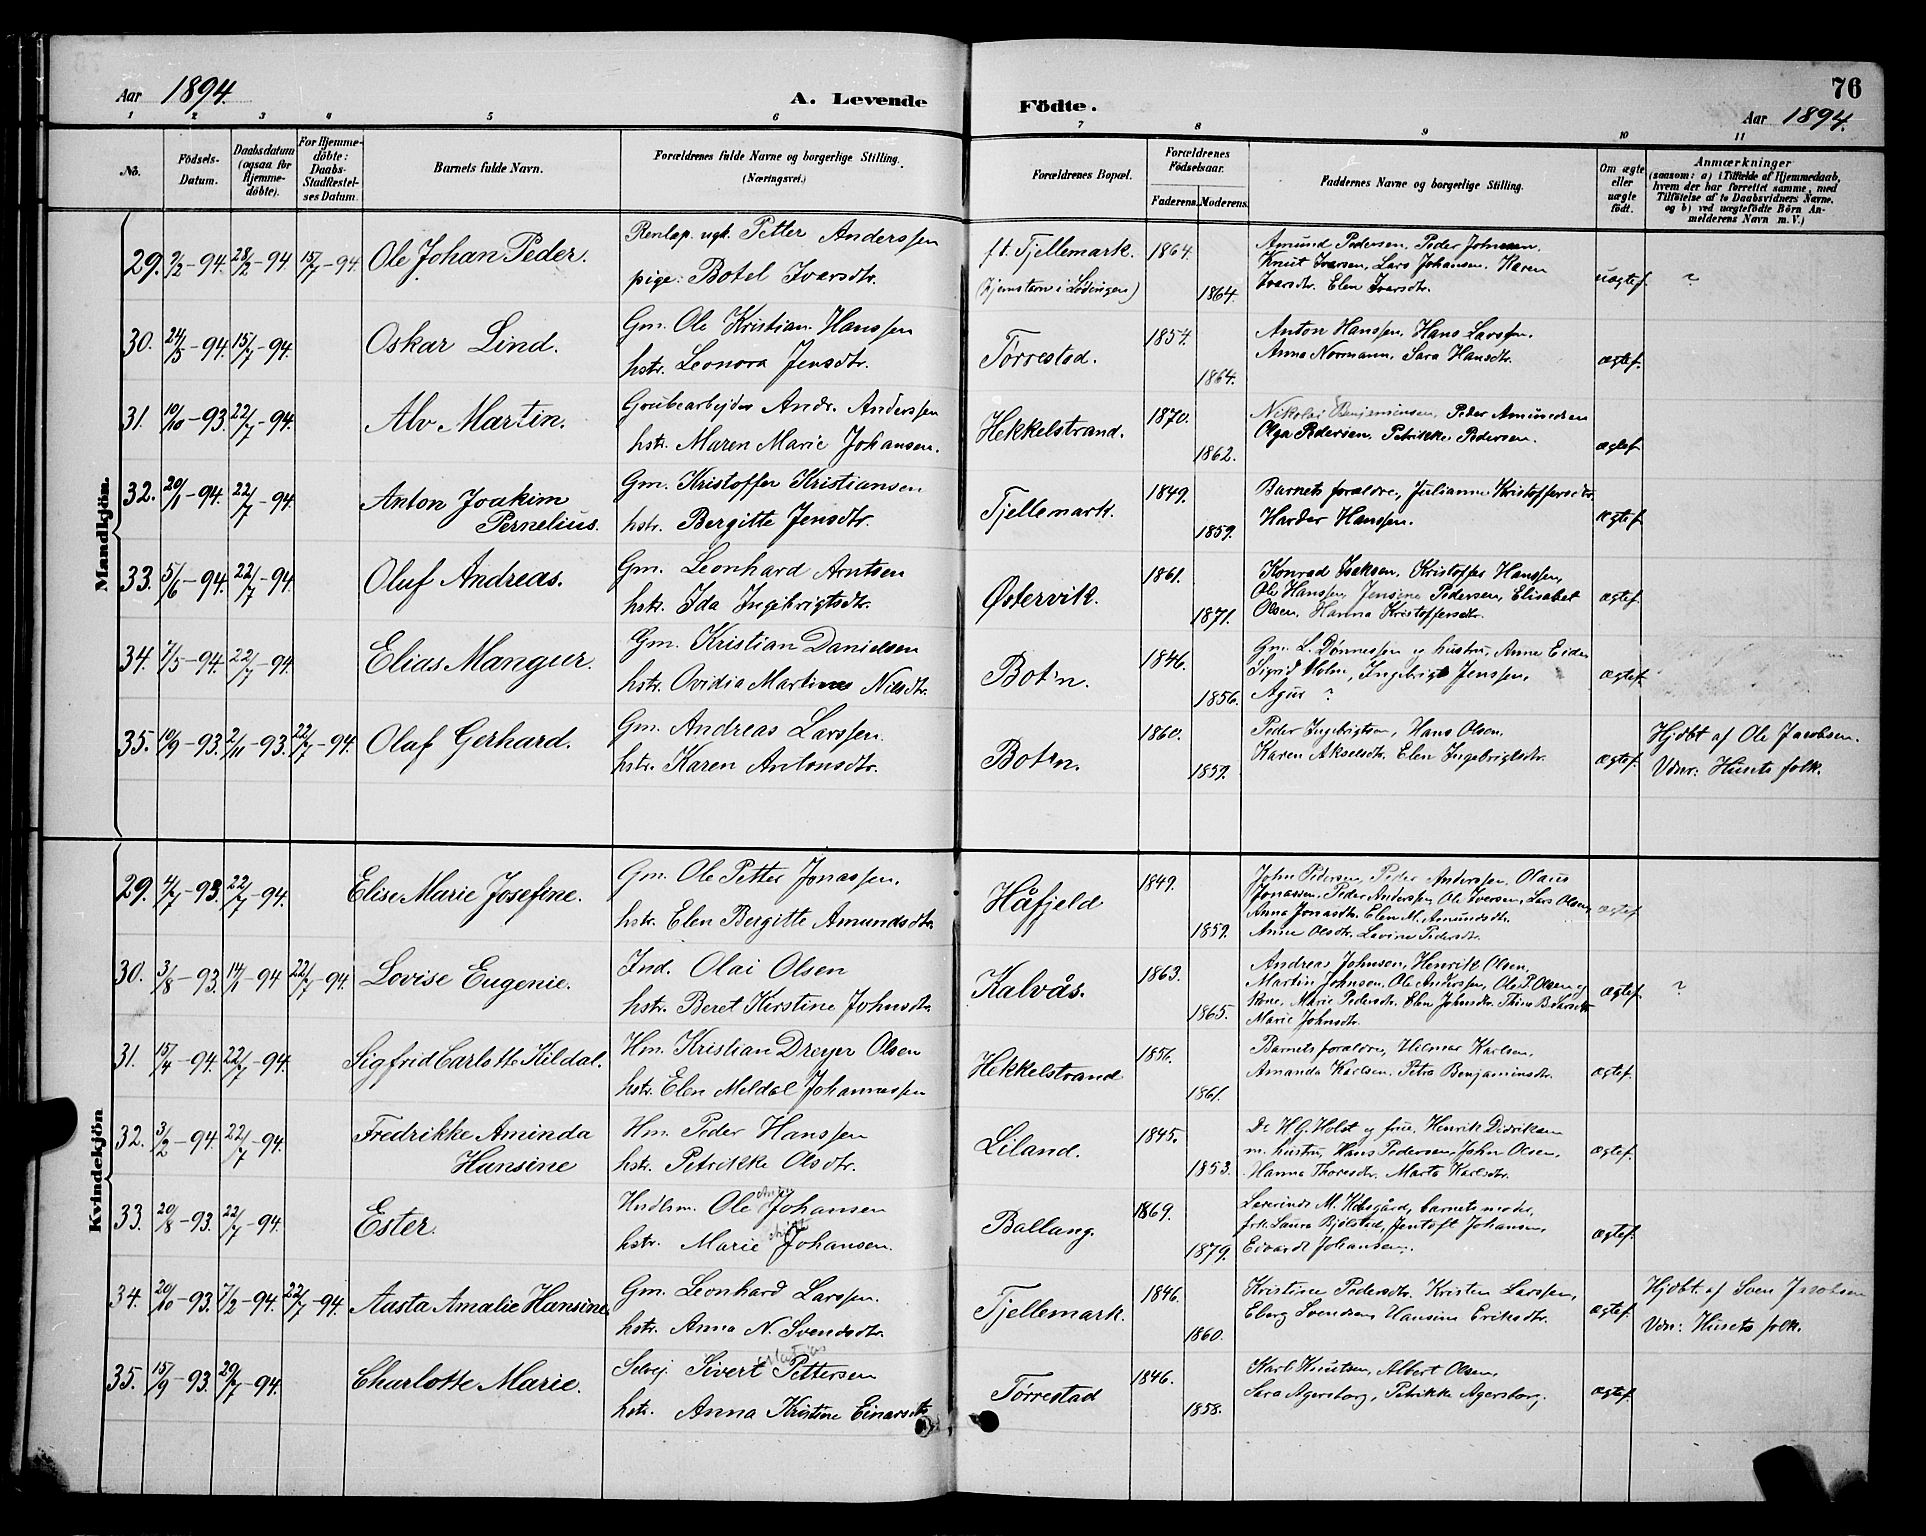 76
Aar 1894. A. Levende Födte. Aar 1894.
1 2 3 4 5 6 7 8 9 10 11
No.
Födsels-
Datum.
Daabsdatum
(ogsaa for
Hjemme-
döbte).
For Hjemme-
döbte:
Daabs-
Stadfestel-
ses Datum.
Barnets fulde Navn.
Forældrenes fulde Navne og borgerlige Stilling.
(Næringsvei.)
Forældrenes Bopæl.
Forældrenes
Födselsaar.
Faderens. Moderens.
Faddernes Navne og borgerlige Stilling.
Om ægte
eller
uægte
födt.
Anmærkninger
(saasom: a) i Tilfælde af Hjemmedaab,
hvem der har forrettet samme, med
Tilföielse af to Daabsvidners Navne,
og b) ved uægtefödte Börn An-
melderens Navn m. V.)
Mandkjön.
29. 2/2-94. 28/2-94 15/7-94 Ole Johan Peder.
Renlap. ugk. Petter Anderssen
pige: Botel Ivarsdtr.
ft. Fjellemark.
(hjemstavn i Lødingen)
1864.
1864.
Amund Pedersen, Peder Johnsen.
Knut Ivarsen, Lars Johansen, Karen
Ivarsdtr. Elen Ivarsdtr.
uægtef. ?
30. 24/5-94. 15/7-94. Oskar Lind.
Gm. Ole Kristian Hanssen
hstr. Leonora Jensdtr.
Tørrestad.
1854.
1864.
Anton Hanssen, Hans Larssen.
Anna Normann, Sara Hansdtr.
ægtef.
31. 10/10-93. 22/7-94. Alv Martin.
Grubearbejder Andr. Anderssen
hstr. Maren Marie Johansen.
Hekkelstrand.
1870.
1862.
Nikolai Benjaminsen, Peder Amundsen
Olga Pedersen, Petrikke Pedersen.
ægtef.
32. 20/1-94. 22/7-94. Anton Joakim
Pernelius.
Gm. Kristoffer Kristiansen
hstr. Bergitte Jensdtr.
Fjellemark.
1849.
1859.
Barnets forældre, Julianne Kristoffersdtr.
Harder Hanssen.
ægtef.
33. 5/6-94. 22/7-94. Oluf Andreas.
Gm. Leonhard Arntsen
hstr. Ida Ingebrigtsdtr.
Østervik.
1861.
1871.
Konrad Isaksen, Kristoffer Hanssen,
Ole Hanssen, Jensine Pedersen, Elisabet
Olsen, Hanna Kristoffersdtr.
ægtef.
34. 7/5-94. 22/7-94. Elias Mangur.
Gm. Kristian Danielsen
hstr. Ovidia Martines Nilsdtr.
Bot'n.
1846.
1856.
Gm. L. Dønnessen og hustru, Anne Eider
Sigrid Holm, Ingebrigt Jenssen,
Agus ?
ægtef.
35. 10/9-93. 2/11-93. 22/7-94. Olaf Gerhard.
Gm. Andreas Larssen.
hstr. Karen Antonsdtr.
Bot'n.
1860.
1859.
Peder Ingebrigtsen, Hans Olsen.
Karen Akselsdtr. Elen Ingebrigtsdtr.
ægtef.
Hjdbt af Ole Jacobsen.
Vdnr: Husets folk.
Kvindekjön
29. 4/7-93. 22/7-94. Elise Marie Josefine.
Gm. Ole Petter Jonassen.
hstr. Elen Bergitte Amundsdtr.
Håfjeld
1849.
1859.
John Pedersen, Peder Anderssen, Olaus
Jonassen, Peder Anderssen, Ole Iversen, Lars Olsen,
Anna Jonasdtr. Elen M. Amundsdtr.
Anne Olsdtr. Lavine Pedersdtr.
ægtef.
30. 3/8-93. 14/1-94 22/7-94. Lovise Eugenie.
Ind. Olai Olsen
hstr. Beret Kirstine Johnsdtr.
Kalvås.
1863.
1865.
Andreas Johnsen, Henrik Olsen,
Martin Johnsen, Ole Anderssen, Ole P. Olsen og
kone, Marie Pedersdtr. Elen Johnsdtr. Thine B. Larsdtr
Marie Johnsdtr.
ægtef. ?
31. 15/4-94. 22/7-94. Sigfrid Carlotte Kildal.
Hm. Kristian Dreyer Olsen
hstr. Elen Meldal Johannessen
Hekkelstrand
1856.
1861.
Barnets forældre, Hilmar Karlsen,
Amanda Karlsen, Petra Benjaminsdtr.
ægtef.
32. 3/2-94. 22/7-94. Fredrikke Aminda
Hansine
Hm. Peder Hanssen
hstr. Petrikke Olsdtr.
Liland.
1845.
1853.
Dr. H.G. Holst og frue, Henrik Didriksen
m. hustru, Hans Pedersen, John Olsen,
Hanna Thoresdtr. Marta Karlsdtr.
ægtef.
33. 20/8-93. 22/7-94. Ester.
Hndlsm. Ole Johansen
hstr. Marie Johansen.
Ballang.
1869.
1879.
M. barnets moder,
frk. Laura Bjølstad, Jentoft Johansen,
Edvardt Johansen.
ægtef.
34. 20/10-93. 7/2-94. 22/7-94. Aasta Amalie Hansine.
Gm. Leonhard Larssen.
hstr. Anna N. Svendsdtr.
Fjellemark.
1846.
1860.
Kristine Pedersdtr. Kristen Larssen,
Eberg Svendsen, Hansine Eriksdtr.
ægtef.
Hjdbt. af Sven Jacobsen
Vdnr: Husets folk.
35. 15/9-93. 29/7-94. Charlotte Marie.
Selvej. Sivert Mathias Pettersen
hstr. Anna Kristine Einarsdtr.
Tørrestad
1846.
1858.
Karl Knutsen, Albert Olsen,
Sara Agersborg, Petrikke Agersborg.
ægtef.